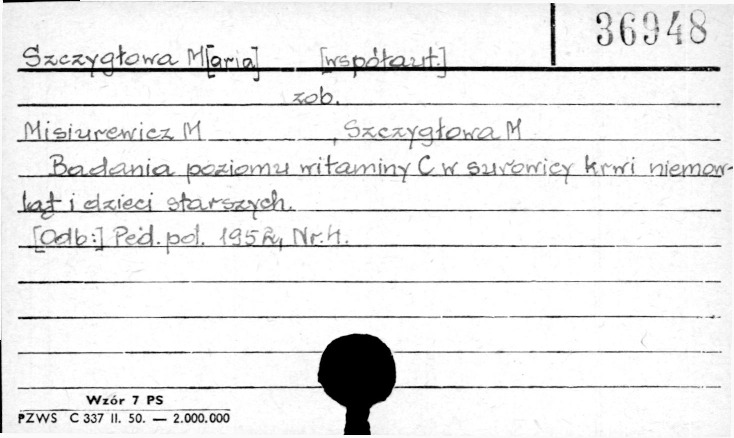 36948
Szczygłowa M[aria] [współaut.]
zob.
Misiurewicz M , Szczygłowa M
Badania poziomu witaminy C w surowicy krwi niemow-
ląt i dzieci starszych.
[Odb:] Ped. pol. 1952, Nr. 4.
Wzór 7 PS
PZWS C 337 II. 50. — 2.000.000